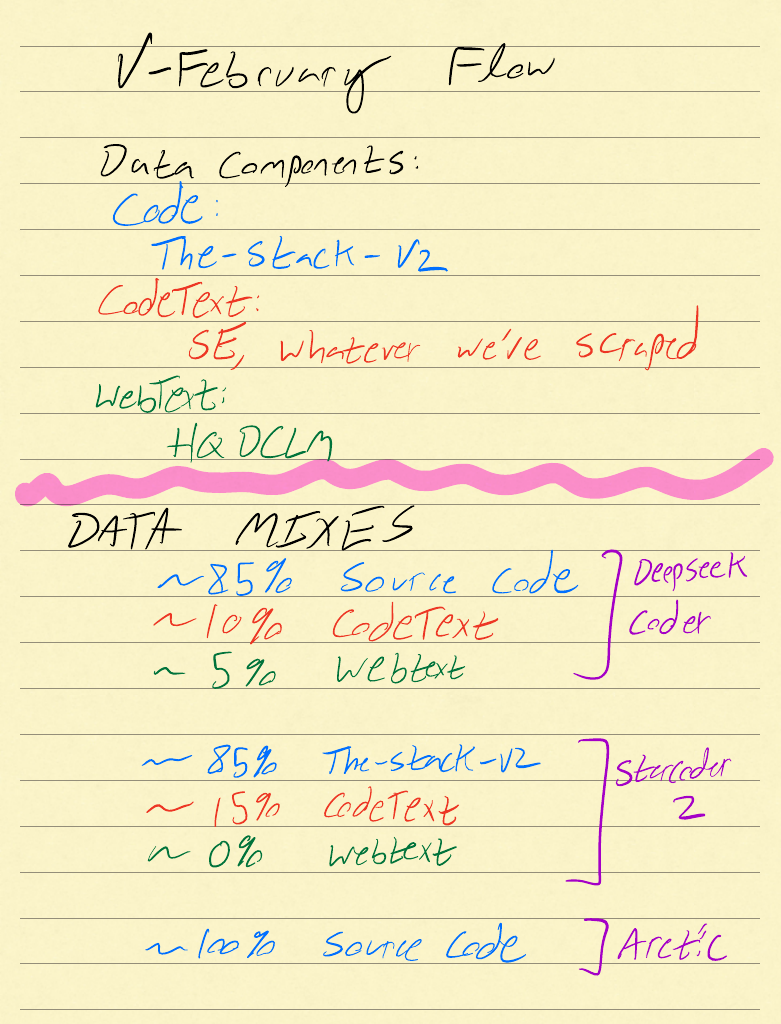 V-February Flow
Data Components:
Code:
The-Stack-V2
CodeText:
SE, whatever we've scraped
WebText:
HQ DCLM
DATA MIXES
~85% Source Code
~10% CodeText
~ 5% Webtext
Deepseek
Coder
~ 85% The-stack-V2
~ 15% CodeText
~ 0% Webtext
Starcoder
2
~100% Source Code
Arctic